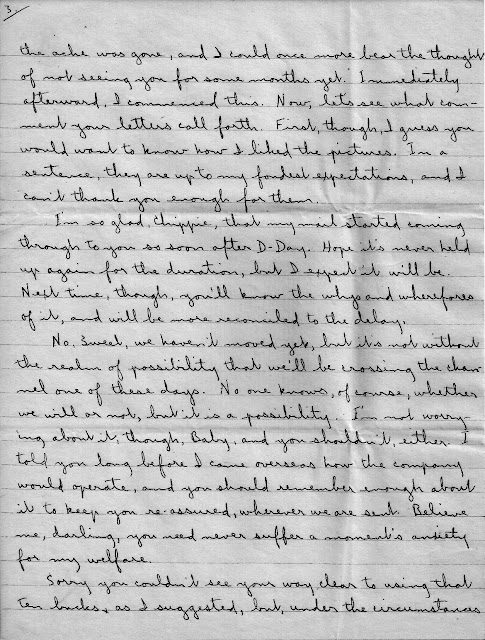 3.
the ache was gone, and I could once more bear the thought
of not seeing you for some months yet. Immediately
afterward, I commenced this. Now, let's see what com-
ment your letters call forth. First, though, I guess you
would want to know how I liked the pictures. In a
sentence, they are up to my fondest expectations, and I
can't thank you enough for them.
I'm so glad, Chippie, that my mail started coming
through to you so soon after D-Day. Hope it's never held
up again for the duration, but I expect it will be.
Next time, though, you'll know the whys and wherefores
of it, and will be more reconciled to the delay.
No, Sweet, we haven't moved yet, but it's not without
the realm of possibility that we'll be crossing the chan-
nel one of these days. No one knows, of course, whether
we will or not, but it is a possibility. I'm not worry-
ing about it, though, Baby, and you shouldn't, either. I
told you long before I came overseas how the company
would operate, and you should remember enough about
it to keep you re-assured, wherever we are sent. Believe
me, darling, you need never suffer a moment's anxiety
for my welfare.
Sorry you couldn't see your way clear to using that
ten bucks, as I suggested, but, under the circumstances